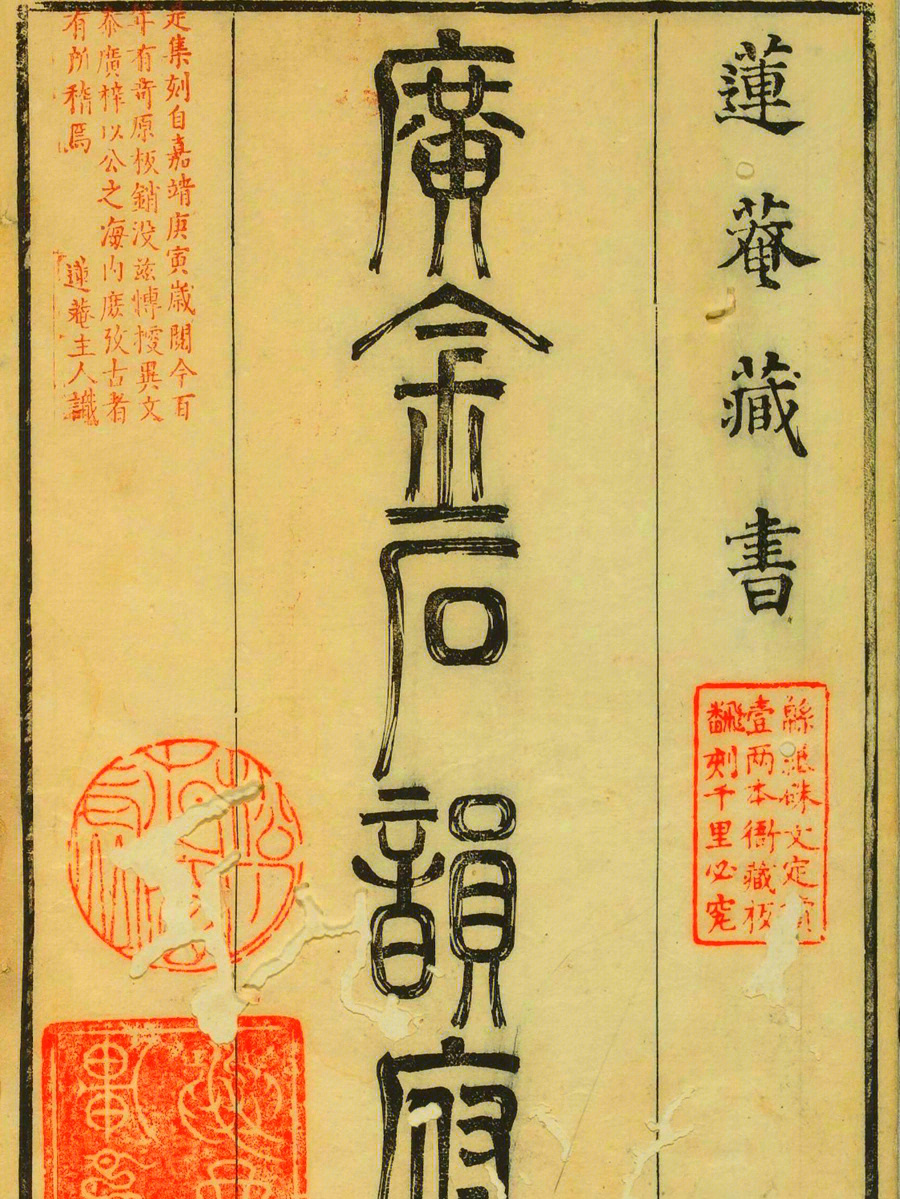 蓮菴藏書
緜紙硃文定價
壹两本衙藏板
飜刻千里必究
廣金石韻府
是集刻自嘉靖庚寅歲閱今百
年有奇原板銷没兹異文
廣梓以公之海内庶攷古者
有所稽焉
蓮菴主人識